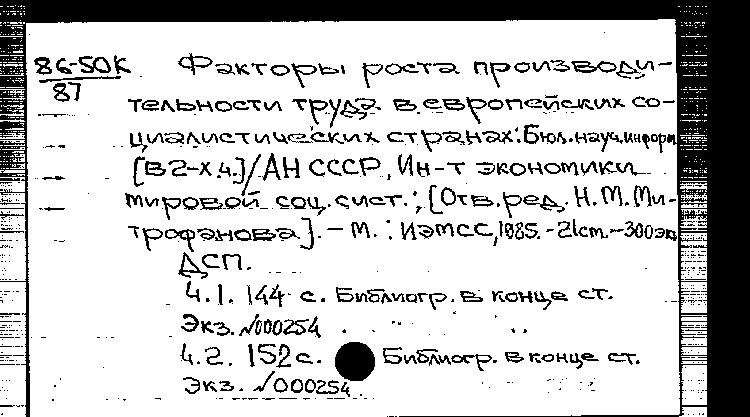 86-50К Факторы роста производи-
87
тельности труда в европейских со-
циалистических странах: Бюл. науч. информ
[В 2-х ч.] / АН СССР, Ин-т экономики
мировой соц. сист.; [Отв. ред. Н. М. Ми-
трофанова]. - М. : ИЭМСС, 1985. - 21 cm. - 300 экз
ДСП.
Ч. 1. 144 с. Библиогр. в конце ст.
Экз. №000254
Ч. 2. 152 с. Библиогр. в конце ст.
Экз. №000254